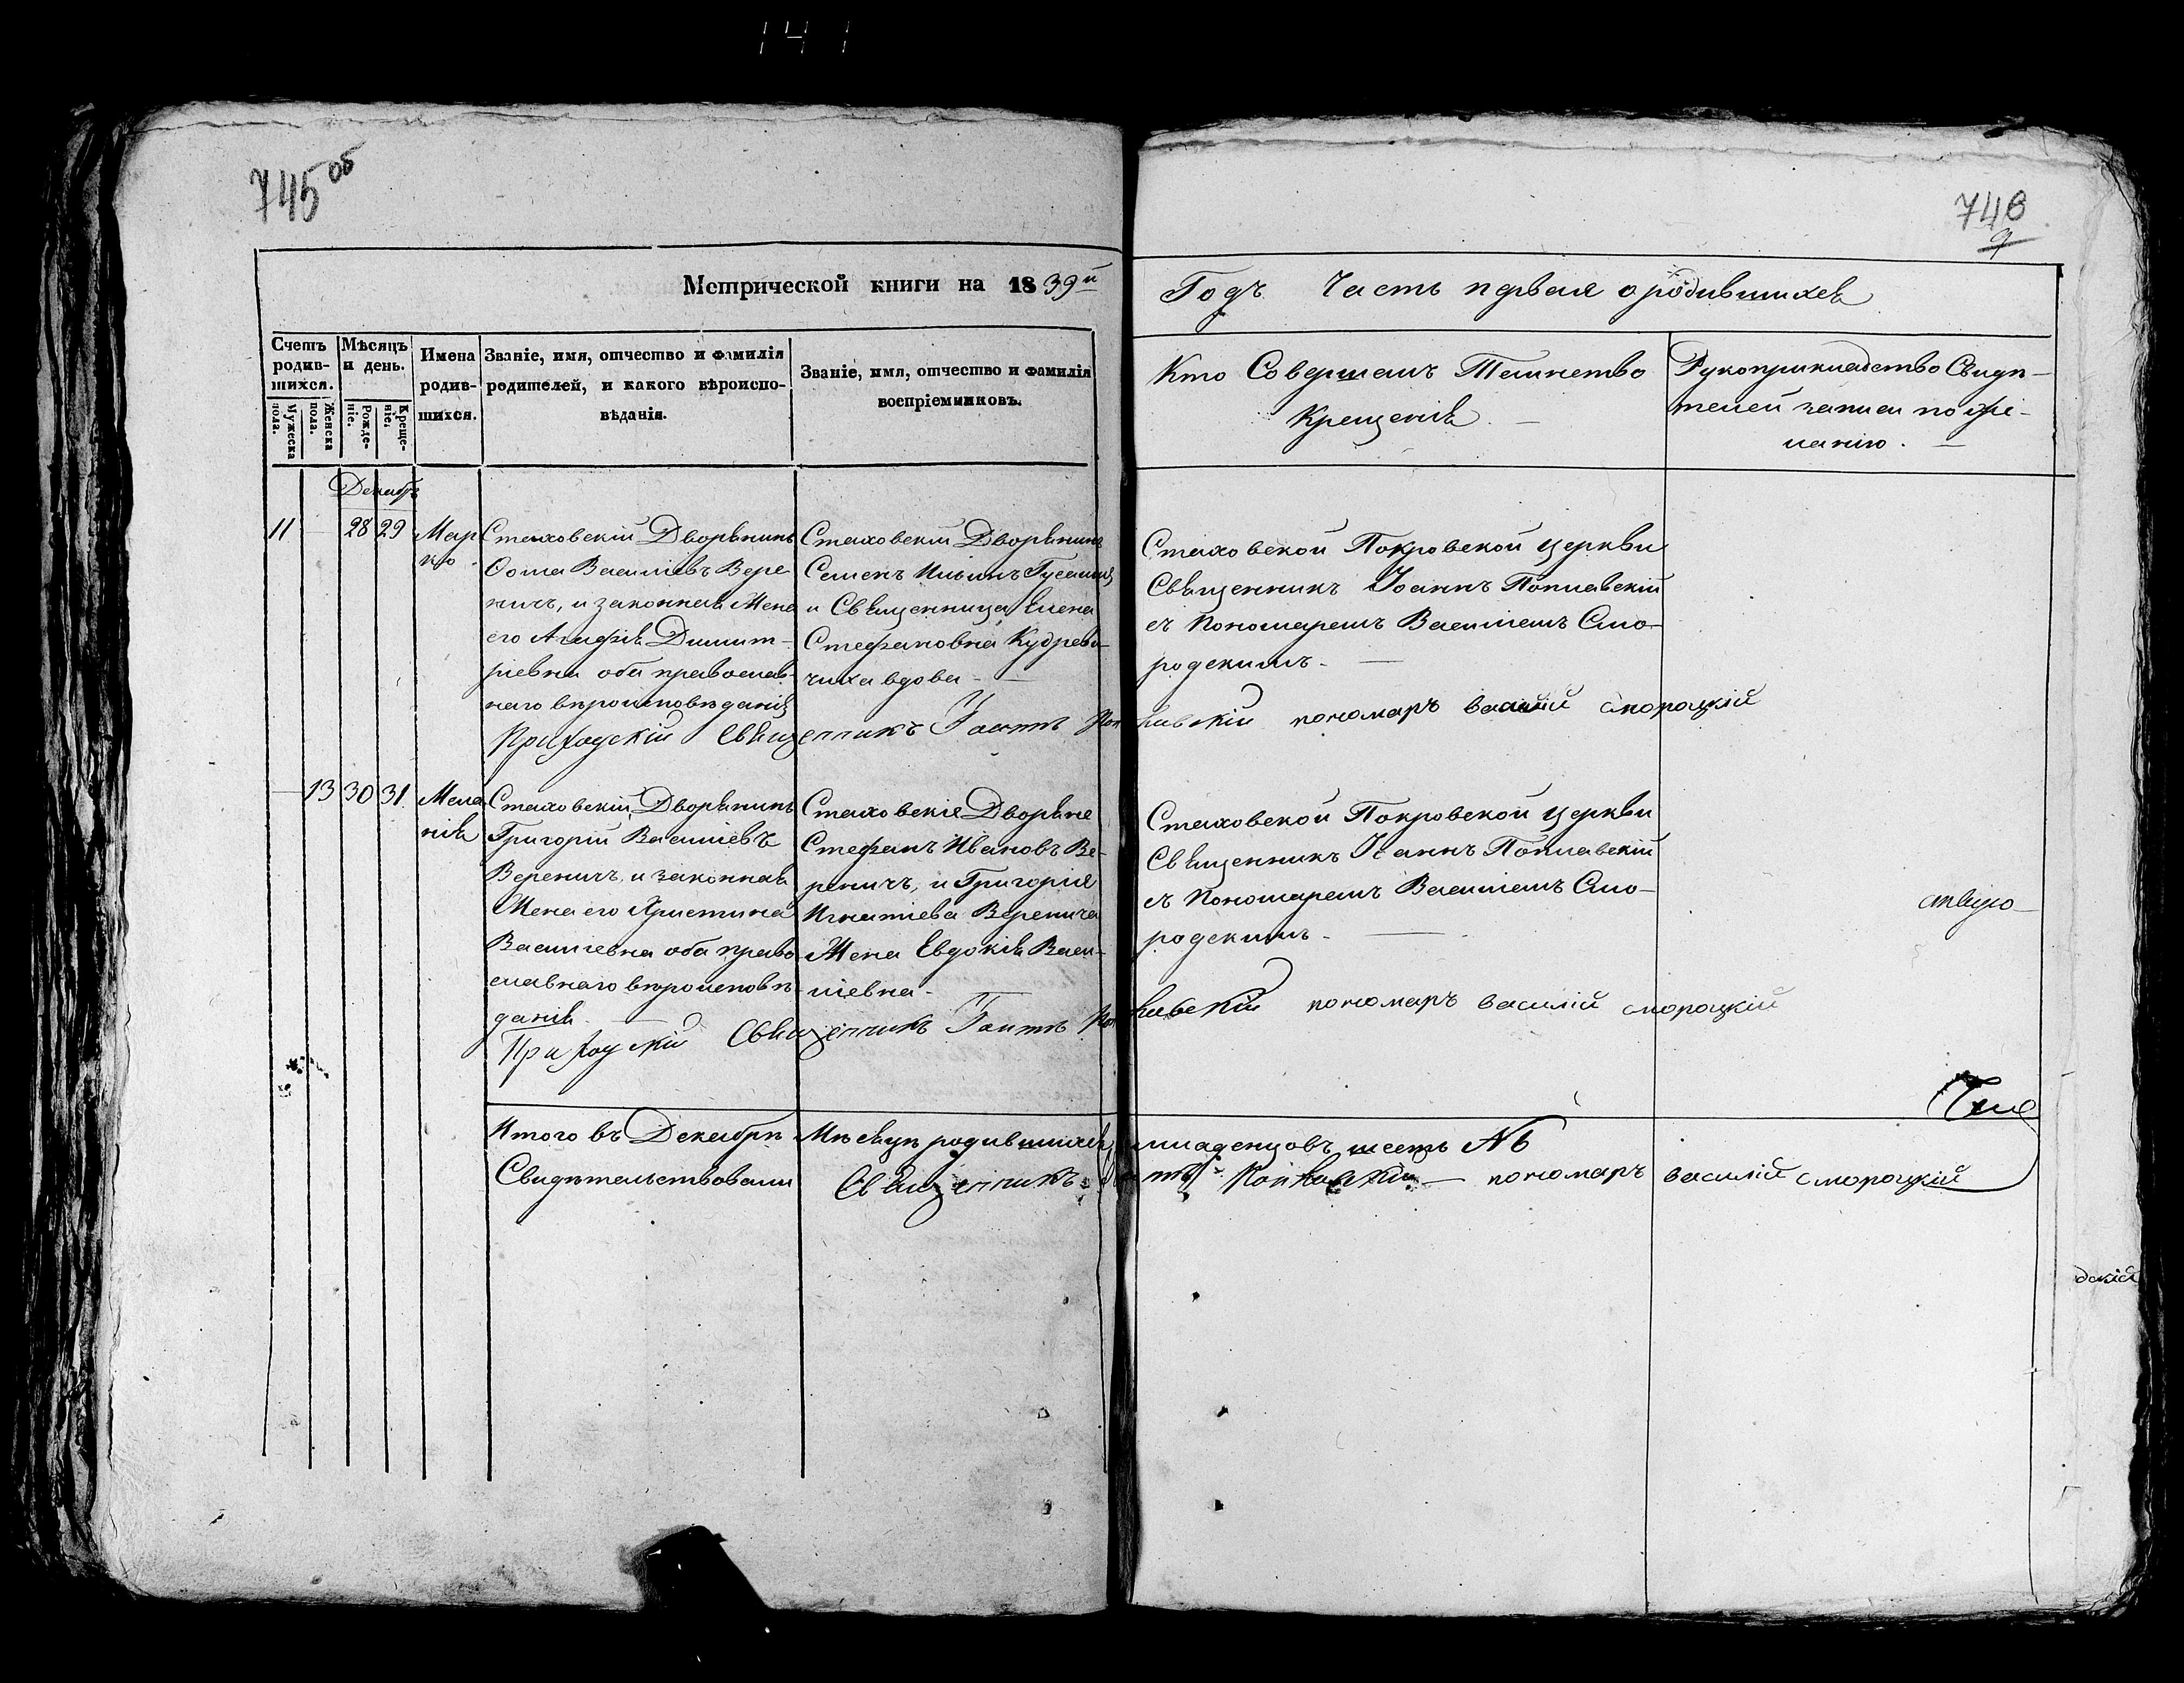 141
745 об
746
9
Метрической книги на 1839й
Годъ Часть первая о родившихся
Счетъ родив-шихся.
Мужеска пола.
Женска пола.
Мѣсяцъ и день.
Рожде-ніе.
Креще-ніе.
Имена родив-шихся.
Званіе, имя, отчество и фамилія
родителей, и какого вѣроиспо-
вѣданія.
Званіе, имя, отчество и фамилія
воспріемниковъ.
Кто Совершалъ Таинство
Крещенія. —
Рукоприкладство Свидѣ-
телей записи по же-
ланію. —
Декабрь
11 — 28 29
Мар
ко
Стаховскій Дворянинъ
Ѳома Васильевъ Вере
ничъ, и законная Жена
его Агафія Димит-
ріевна оба православ-
наго вѣроисповѣданія
Стаховскій Дворянинъ
Семенъ Ильинъ
и Священница Елена
Стефановна Кудреви-
чиха вдова —
Стаховской Покровской церкви
Священникъ Іоаннъ Поплавскій
съ Пономаремъ Василіемъ Смо-
родскимъ —
Приходскій Священникъ Іоаннъ Поплавскій пономаръ василій смороцкій
— 13 30 31
Мела
нія
Стаховскій Дворянинъ
Григорій Васильевъ
Вереничъ, и законная
Жена его Христина
Васильевна оба право
славнаго вѣроисповѣ-
данія —
Стаховскіе Дворяне
Стефанъ Ивановъ Ве-
реничъ, и Григорія
Игнатіева Веренича
Жена Евдокія Васи-
ліевна —
Стаховской Покровской церкви
Священникъ Іоаннъ Поплавскій
съ Пономаремъ Василіемъ Смо-
родскимъ —
Приходскій Священникъ Іоаннъ Поплавскій пономаръ василій смороцкій
Итого въ Декабрѣ Мѣсяцѣ родившихся младенцовъ шесть № 6
Свидѣтельствовали Священникъ Поплавскій — пономаръ василій смороцкій